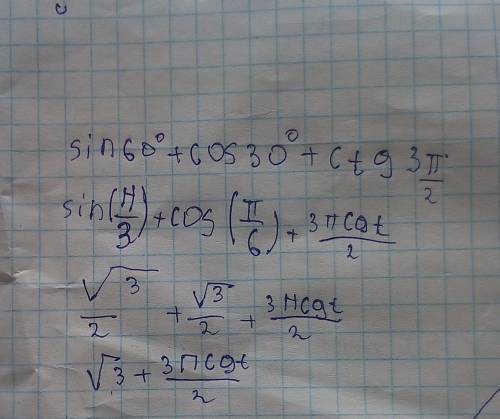 sin60°+cos30°+ctg 3π/2
sin(π/3)+cos(π/6)+3πcgt/2
√3/2+√3/2+3πcgt/2
√3+3πcgt/2